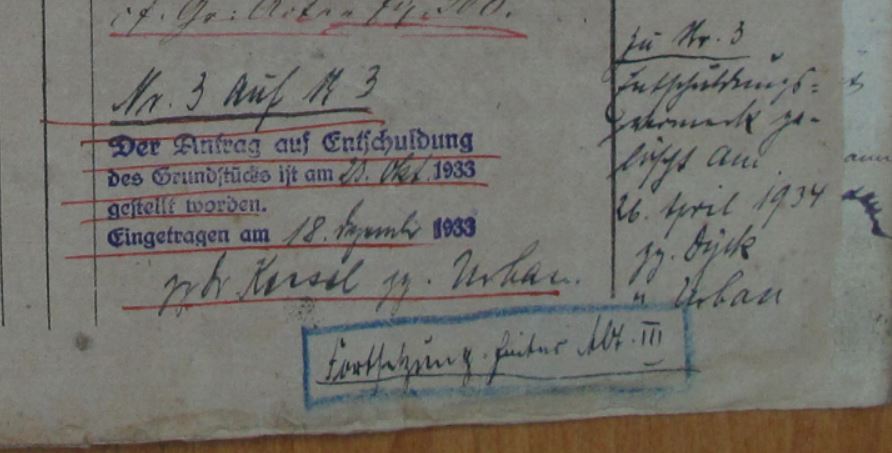 Nr. 3 auf N 3
Der Antrag auf Entschuldung
des Grundstücks ist am 23. Okt. 1933
gestellt worden.
Eingetragen am 18. Dezember 1933
gz. Dr Kessel gz. Urban.
Fortsetzung hinter Abt. III
zu Nr. 3
Entschuldungs-
vermerk ge-
löscht am
26. April 1934
gz. Dyck
" Urban